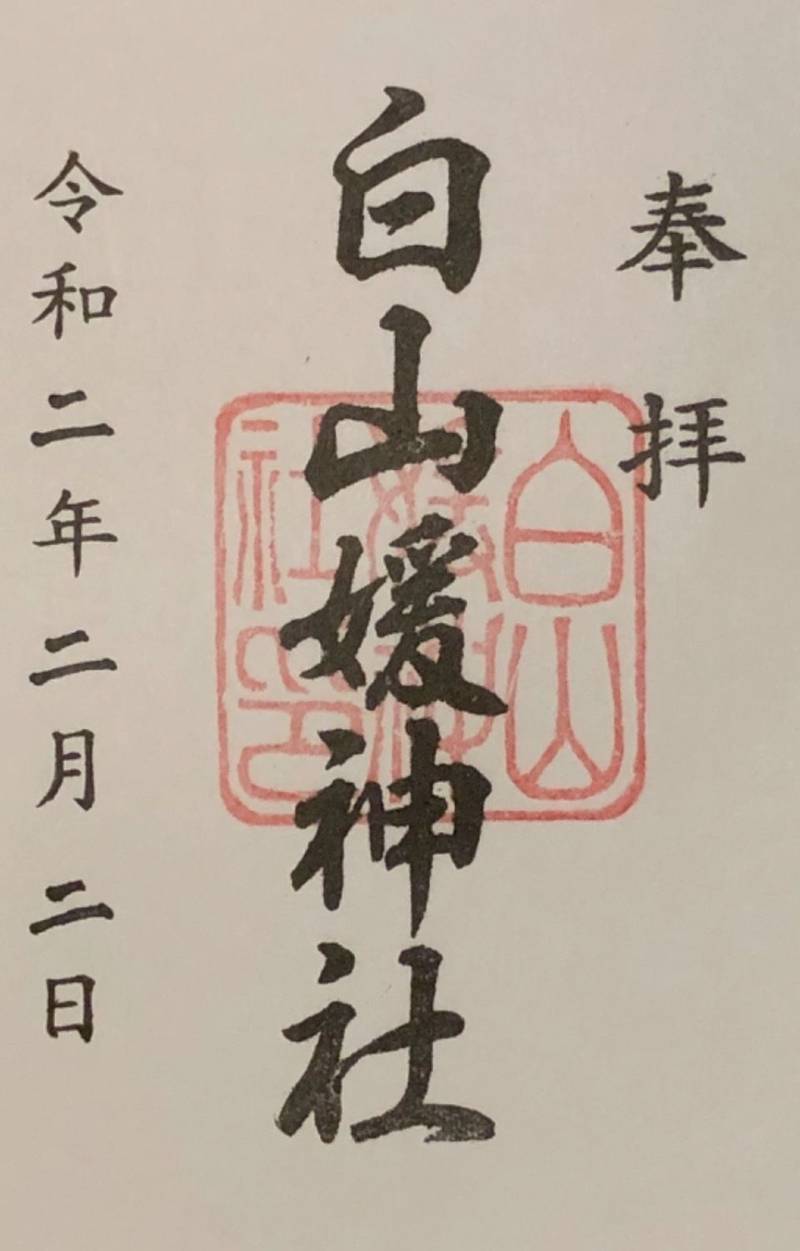 奉拝
白山媛神社
令和二年二月二日
白山
媛神
社印